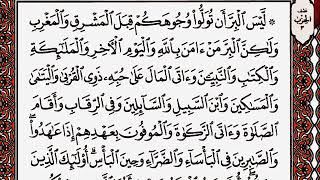 ۞ لَّيْسَ الْبِرَّ أَن تُوَلُّوا وُجُوهَكُمْ قِبَلَ الْمَشْرِقِ وَالْمَغْرِبِ
وَلَٰكِنَّ الْبِرَّ مَنْ ءَامَنَ بِاللَّهِ وَالْيَوْمِ الْآخِرِ وَالْمَلَٰٓئِكَةِ
وَالْكِتَٰبِ وَالنَّبِيِّۦنَ وَءَاتَى الْمَالَ عَلَىٰ حُبِّهِۦ ذَوِى الْقُرْبَىٰ وَالْيَتَٰمَىٰ
وَالْمَسَٰكِينَ وَابْنَ السَّبِيلِ وَالسَّآئِلِينَ وَفِى الرِّقَابِ وَأَقَامَ
الصَّلَوٰةَ وَءَاتَى الزَّكَوٰةَ وَالْمُوفُونَ بِعَهْدِهِمْ إِذَا عَٰهَدُوا ۖ
وَالصَّٰبِرِينَ فِى الْبَأْسَآءِ وَالضَّرَّآءِ وَحِينَ الْبَأْسِ ۗ أُولَٰٓئِكَ الَّذِينَ